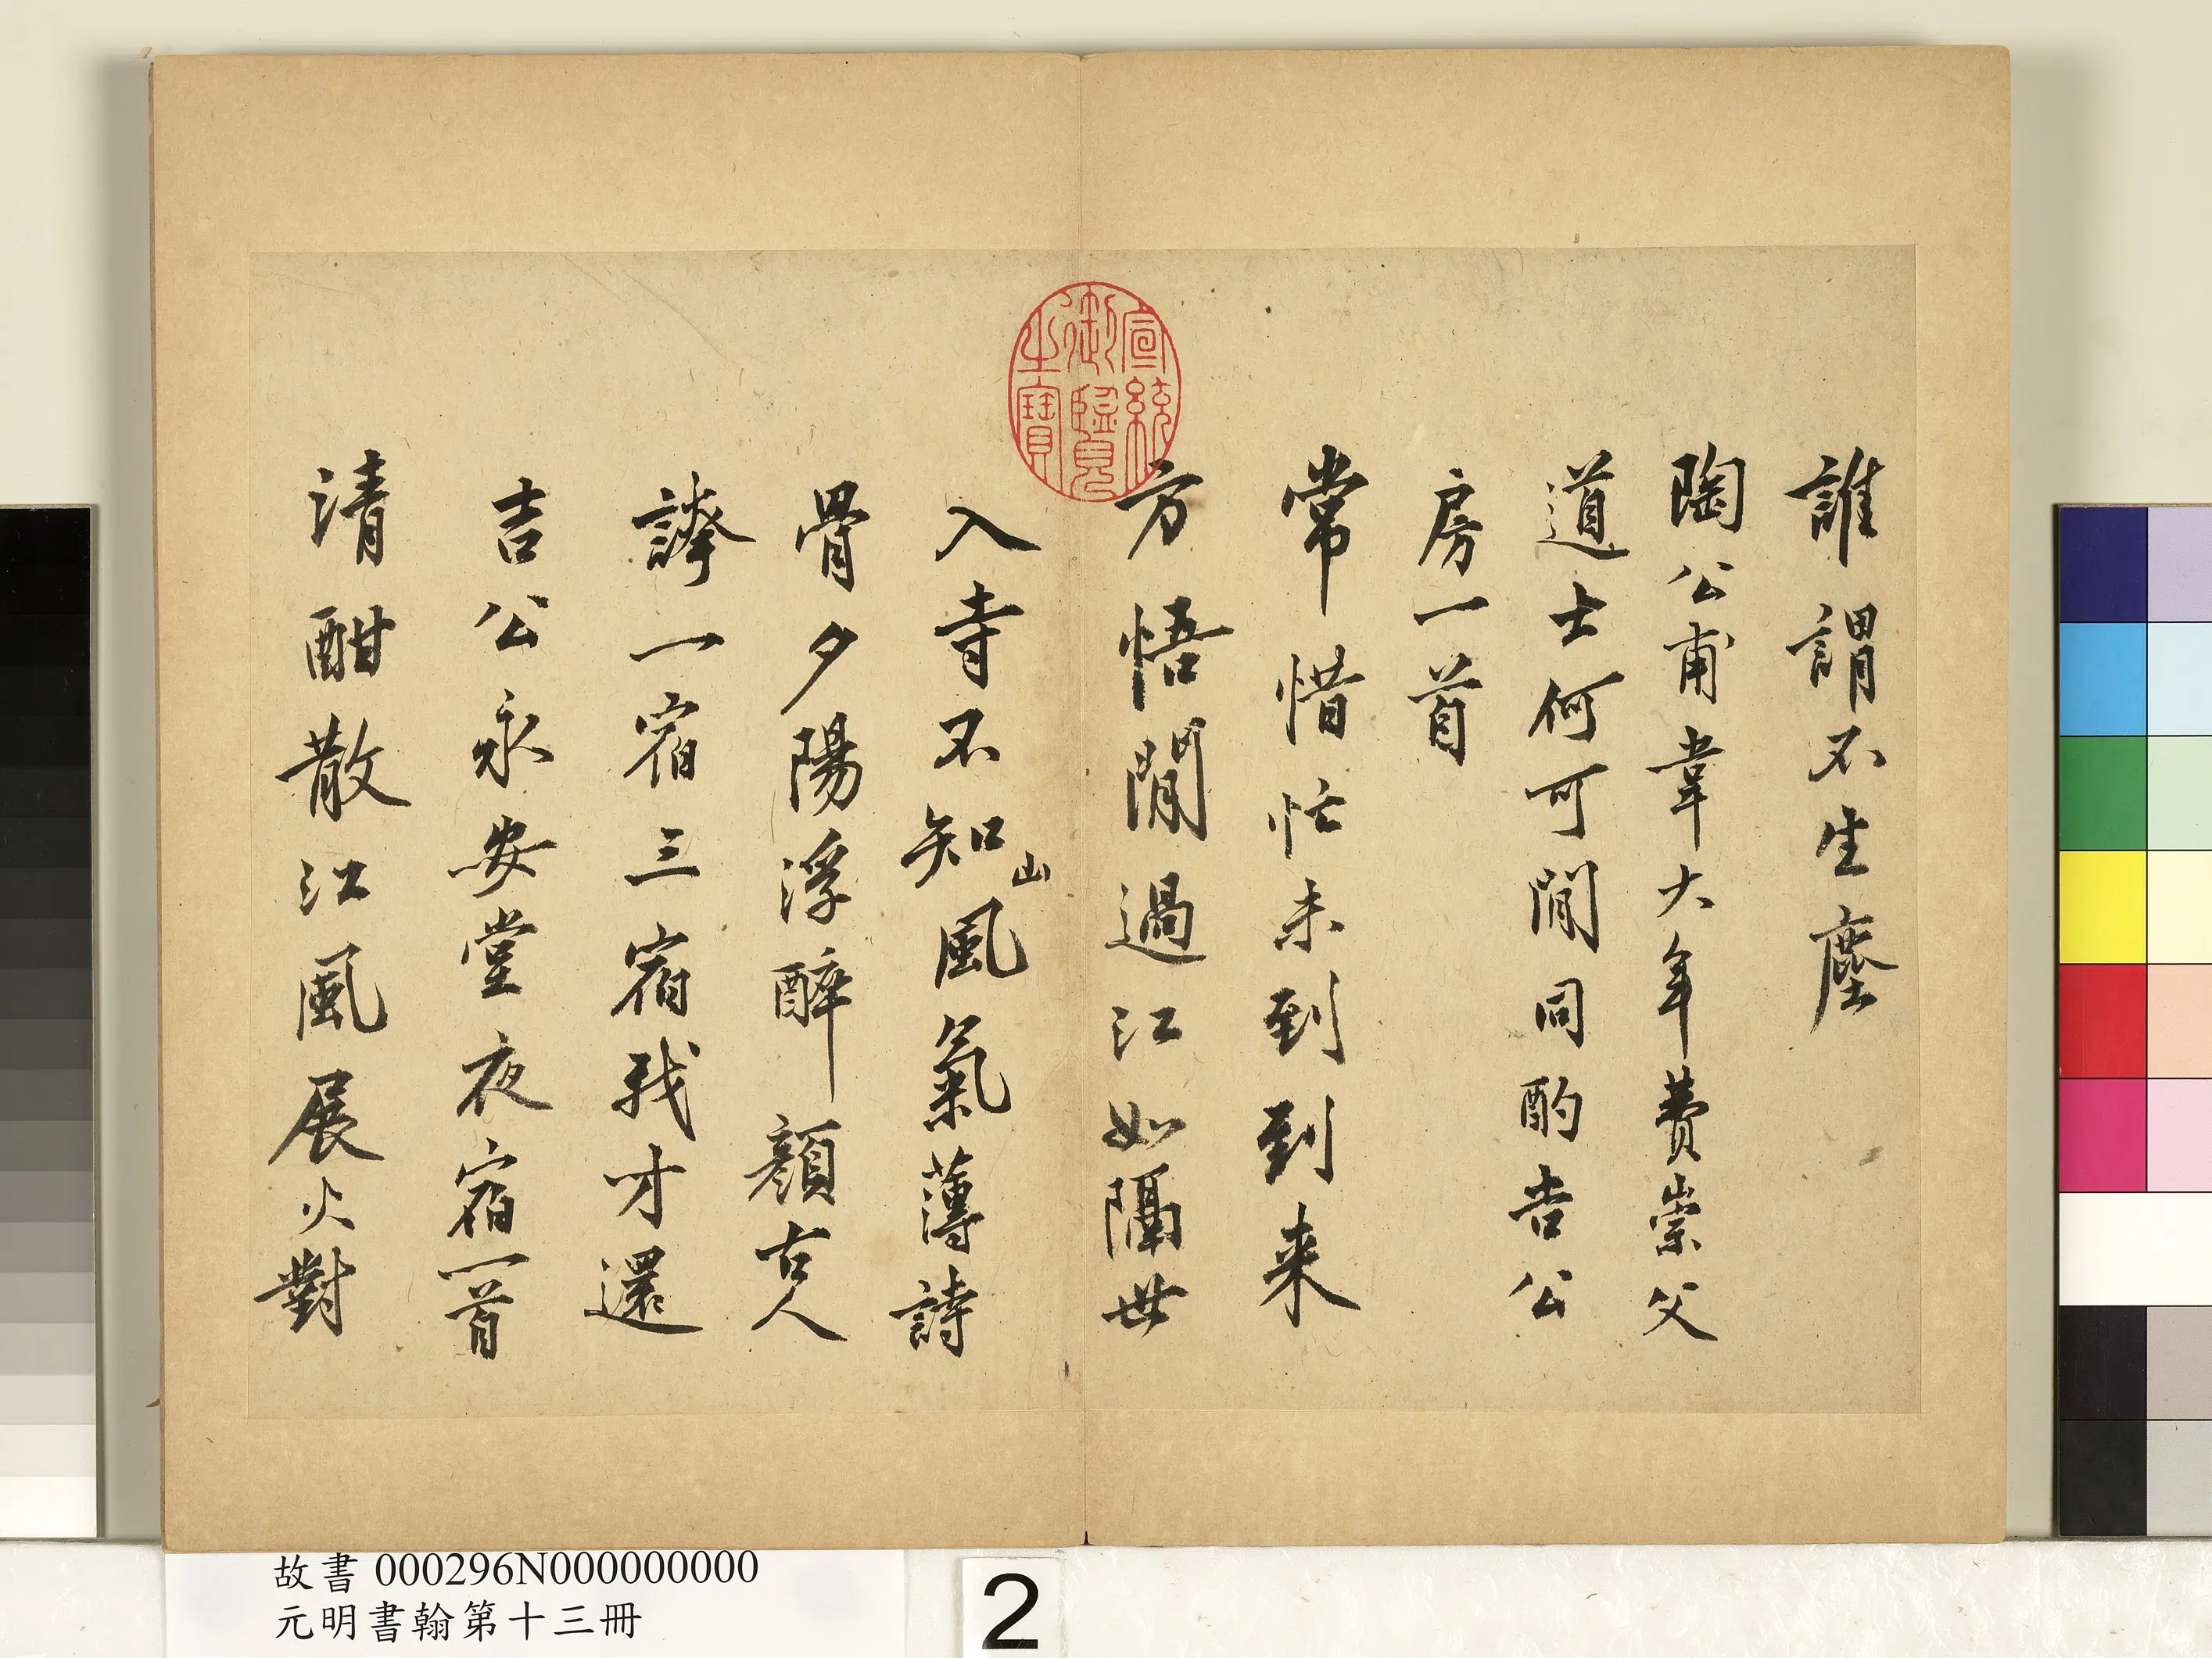 誰謂不生塵
陶公甫韋大年費崇父
道士何可閒同酌吉公
房一首
常惜忙未到到来
方悟閒過江如隔世
入寺不知山風氣薄詩
骨夕陽浮醉顔古人
誇一宿三宿我才還
吉公永安堂夜宿一首
清酣散江風展火對
宣統御覽之寶
故書 000296N000000000
元明書翰第十三冊
2